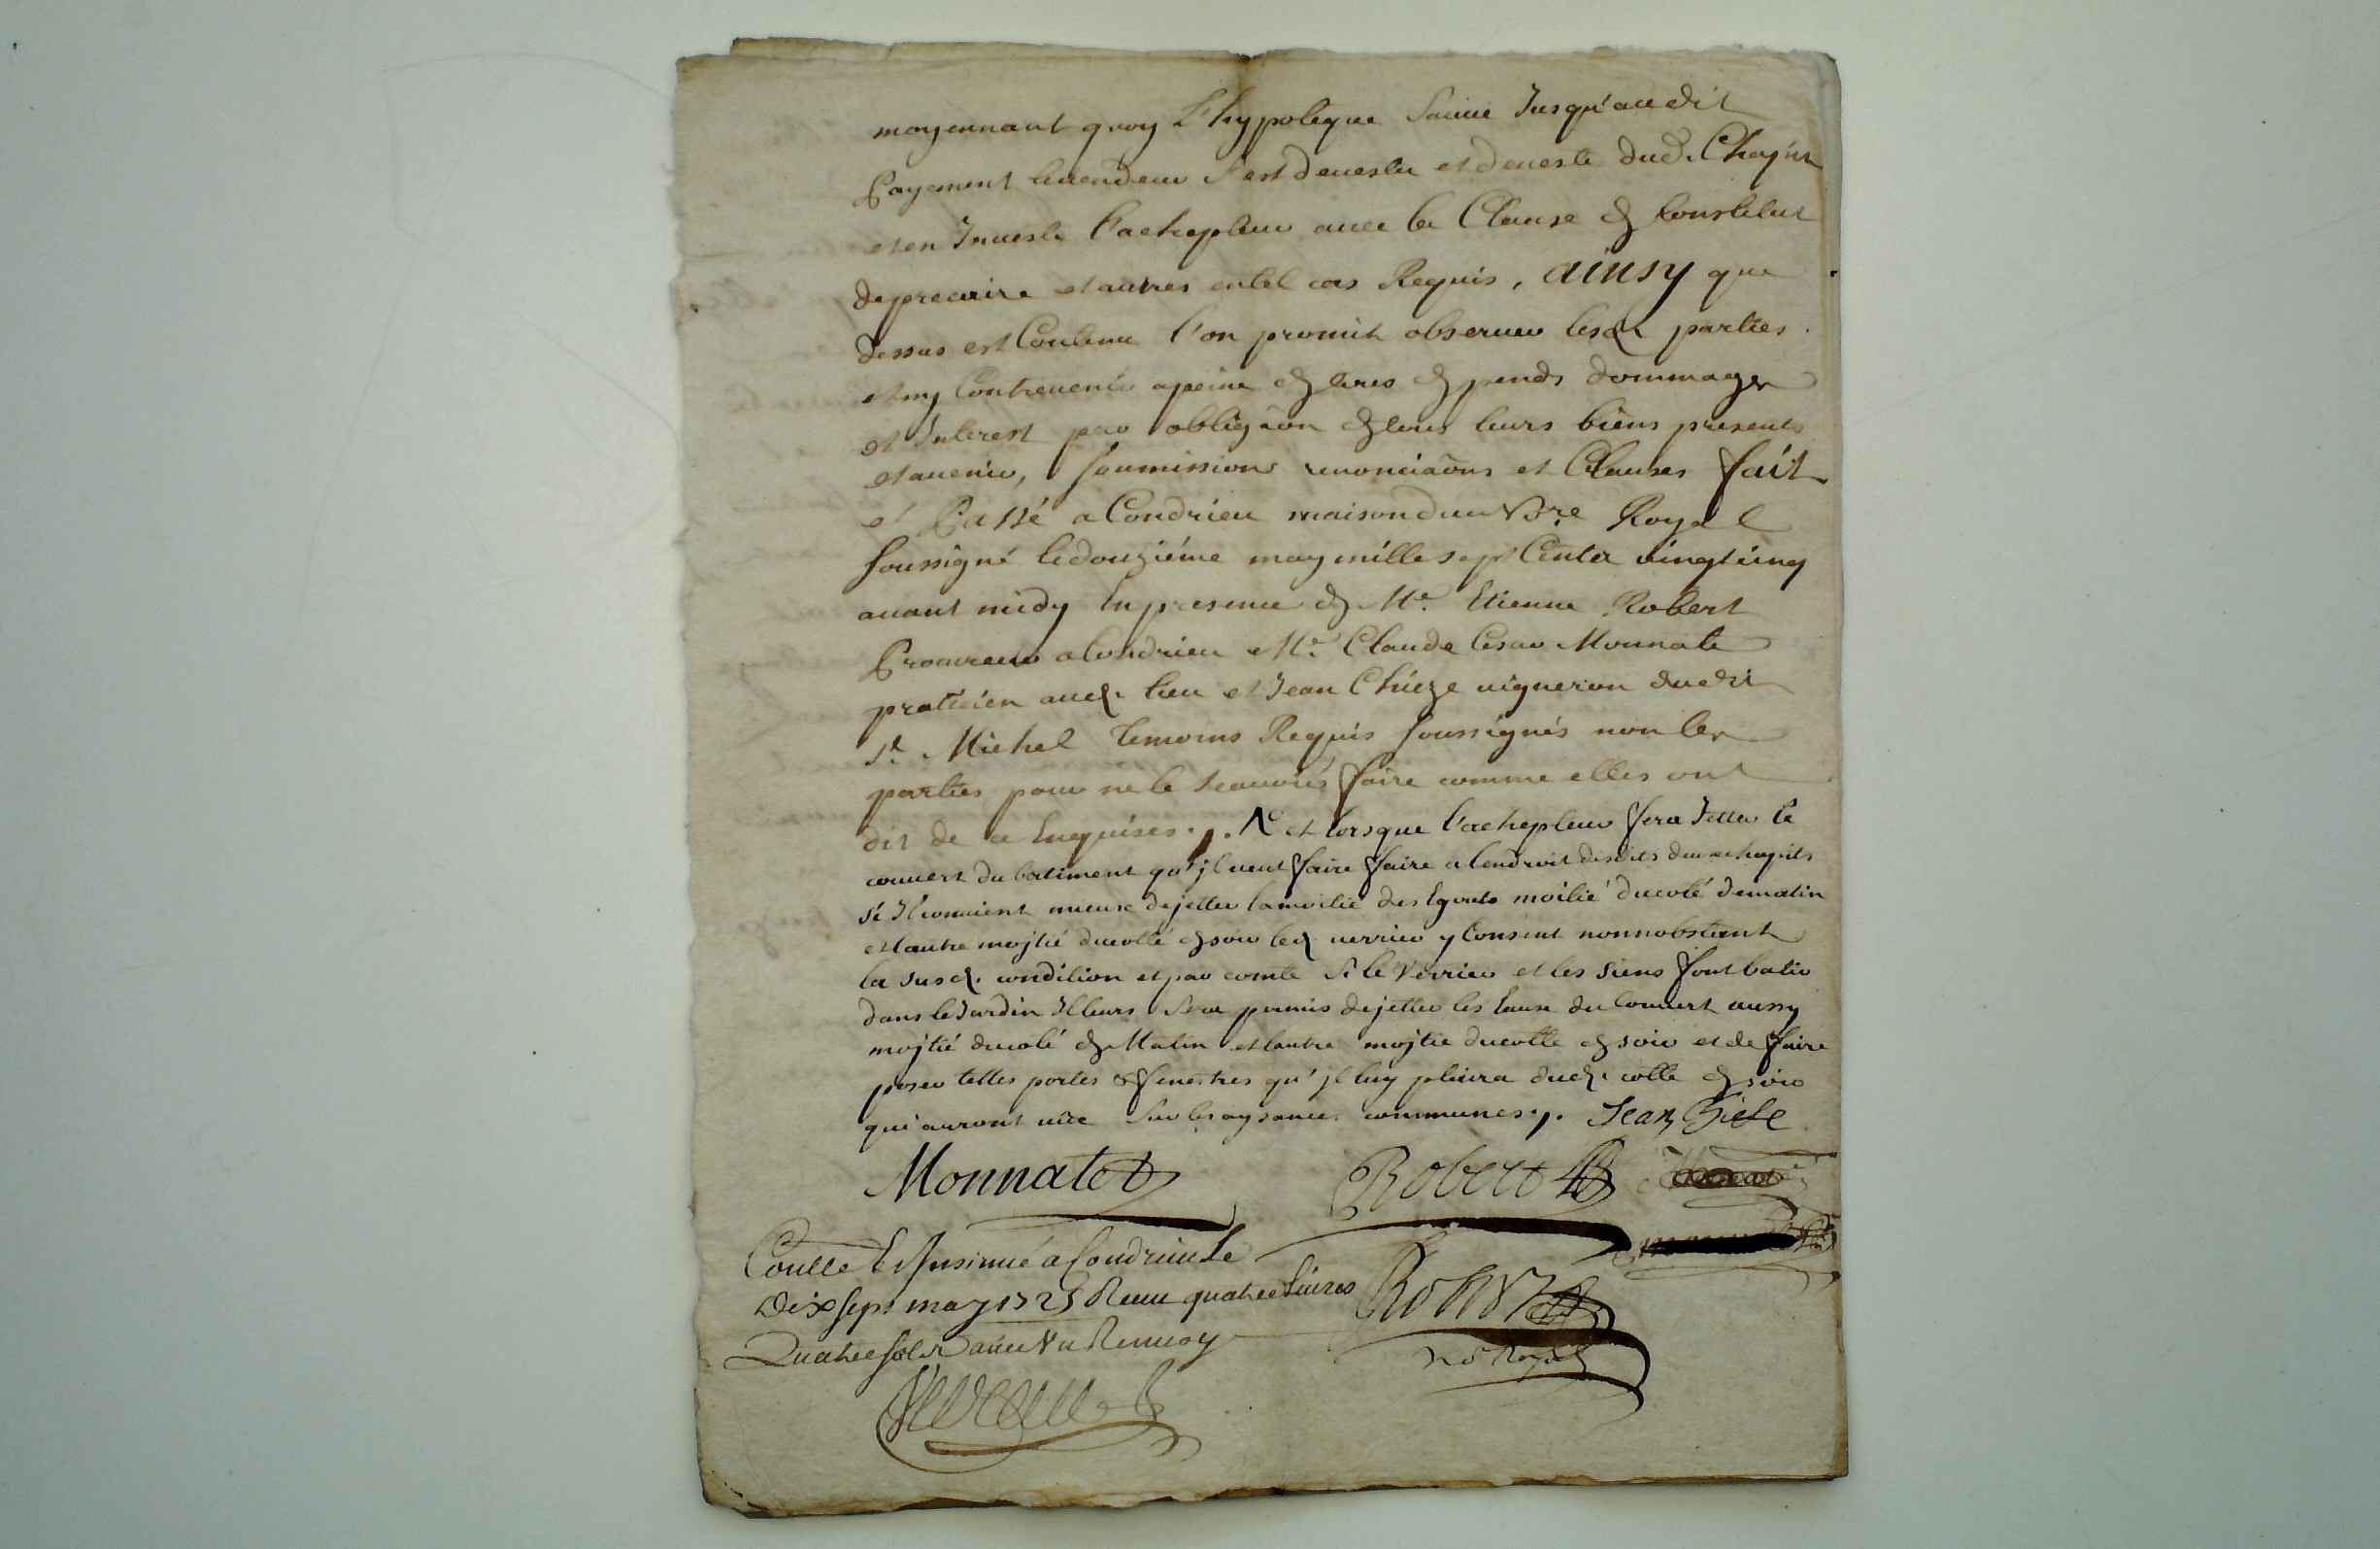 moyennant quoy L'hypoteque Sauue Jusqu'audit
Payement leuendeur s'est deuestu et deueste dud. Chapit
et en Inueste l'achepteur auec la Clause de Constitut
de precaire et autres en tel cas Requis, ainsy que
dessus est Contenu l'on promit obseruer lesd. parties
et ny Contreuenir apeine de tous despends dommages
et Interest par obligãon de tous leurs biens presents
et auenir, soumissions renonciaõns et Clauses fait
et Passé a Condrieu maison du no.re Royal
soussigné le douziéme may mille sept Cents vingt cinq
auant midy En presence de Me. Etienne Robert
Procureur a Condrieu Me. Claude Cesar Monnate
praticien aud. lieu et Jean Chieze uigneron dudit
St. Michel temoins Requis soussignés non les
parties pour ne le scauoir faire comme elles ont
dit de ce Enquises ./. et lorsque l'achepteur fera Jetter le
couuert du batiment qu'jl ueut faire faire a lendroit desdits deux chapits
si Il conuient mieux de jetter la moitié des Egouts moitié ducoté dematin
et lautre mojtié ducotté de soir led. uerrier y Consent nonnobstant
la susd. condition et par comte si le Verrier et les siens font batir
dans le Jardin Il leurs sera permis de jetter les Eaux du Couuert aussy
mojtié ducoté de Matin et lautre mojtie ducotte de soir et de faire
poser telles portes & fenestres qu'jl luy plaira dud. cotte de soir
qui auront uüe sur les aysances communes ./. Jean Chieze
Monnate Robert
Controllé Et Insinué a Condrieu Le
Dix sept may 1725 Receu quatre Liures
Quatre sols
Robert
no.re Royal